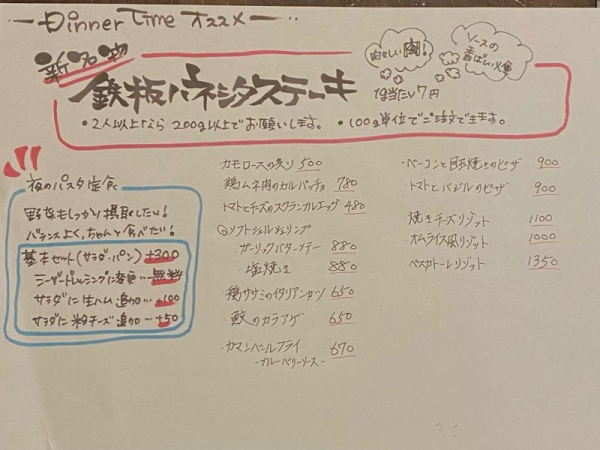 Dinner Time オススメ
新名物
肉々しい肉!
ソースの
香ばしい
鉄板ハネシタステーキ
1g当たり7円
・2人以上なら 200g以上でお願いします。 ・100g単位でご注文できます。
夜のパスタ定食
野菜もしっかり摂取したい!
バランスよく、ちゃんと食べたい!
基本セット(サラダ・パン) +300
シーザードレッシングに変更…無料
サラダに生ハム追加…+100
サラダに粉チーズ追加…+50
カモロースの炙り 500
鶏ムネ肉のカルパッチョ 780
トマトとチーズのスクランブルエッグ 480
ソフトシェルシュリンプ
ガーリックバターソテー 880
・塩焼き 880
鶏ササミのイタリアンカツ 650
鮫のカラアゲ 650
・カマンベールフライ 670
ーブルーベリーソースー
・ベーコンと目玉焼きのピザ 900
トマトとバジルのピザ 900
焼きチーズリゾット 1100
・オムライス風リゾット 1000
ペスカトーレリゾット 1350